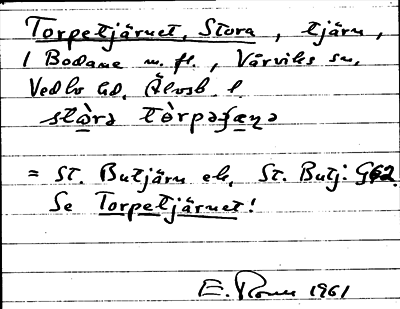 Torpetjärnet, Stora, tjärn,
i Bodane m. fl., Värviks sn,
Vedbo hd, Älvsb. l.
stòrə tòrpəʃæɳə
= St. Butjärn ek, St. Butj: G62.
Se Torpetjärnet!
E. 1961